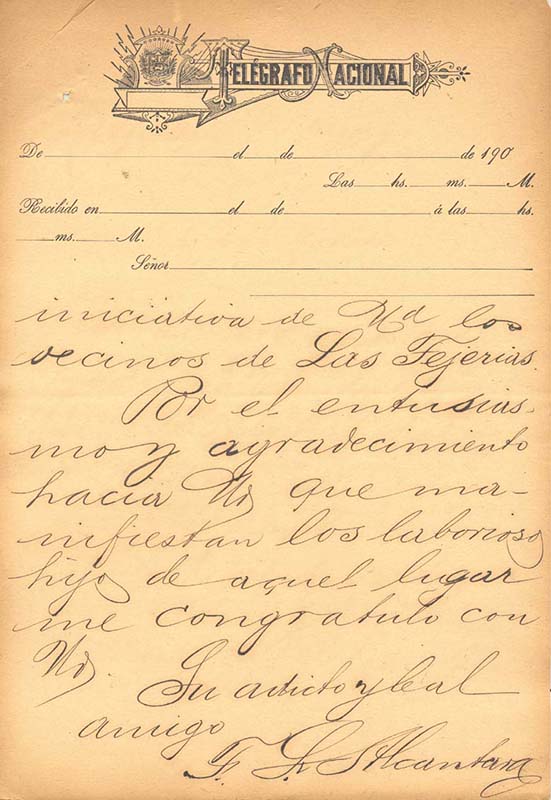 TELÉGRAFO NACIONAL
De el de de 190
Las hs. ms. M.
Recibido en el de á las hs.
ms. M.
Señor
iniciativa de Ud los
vecinos de Las Tejerias.
Por el entusias-
mo y agradecimiento
hacia Ud que ma-
nifiestan los laboriosos
hijos de aquel lugar
me congratulo con
Ud.
Su adicto y leal
amigo
F. L. Alcantara